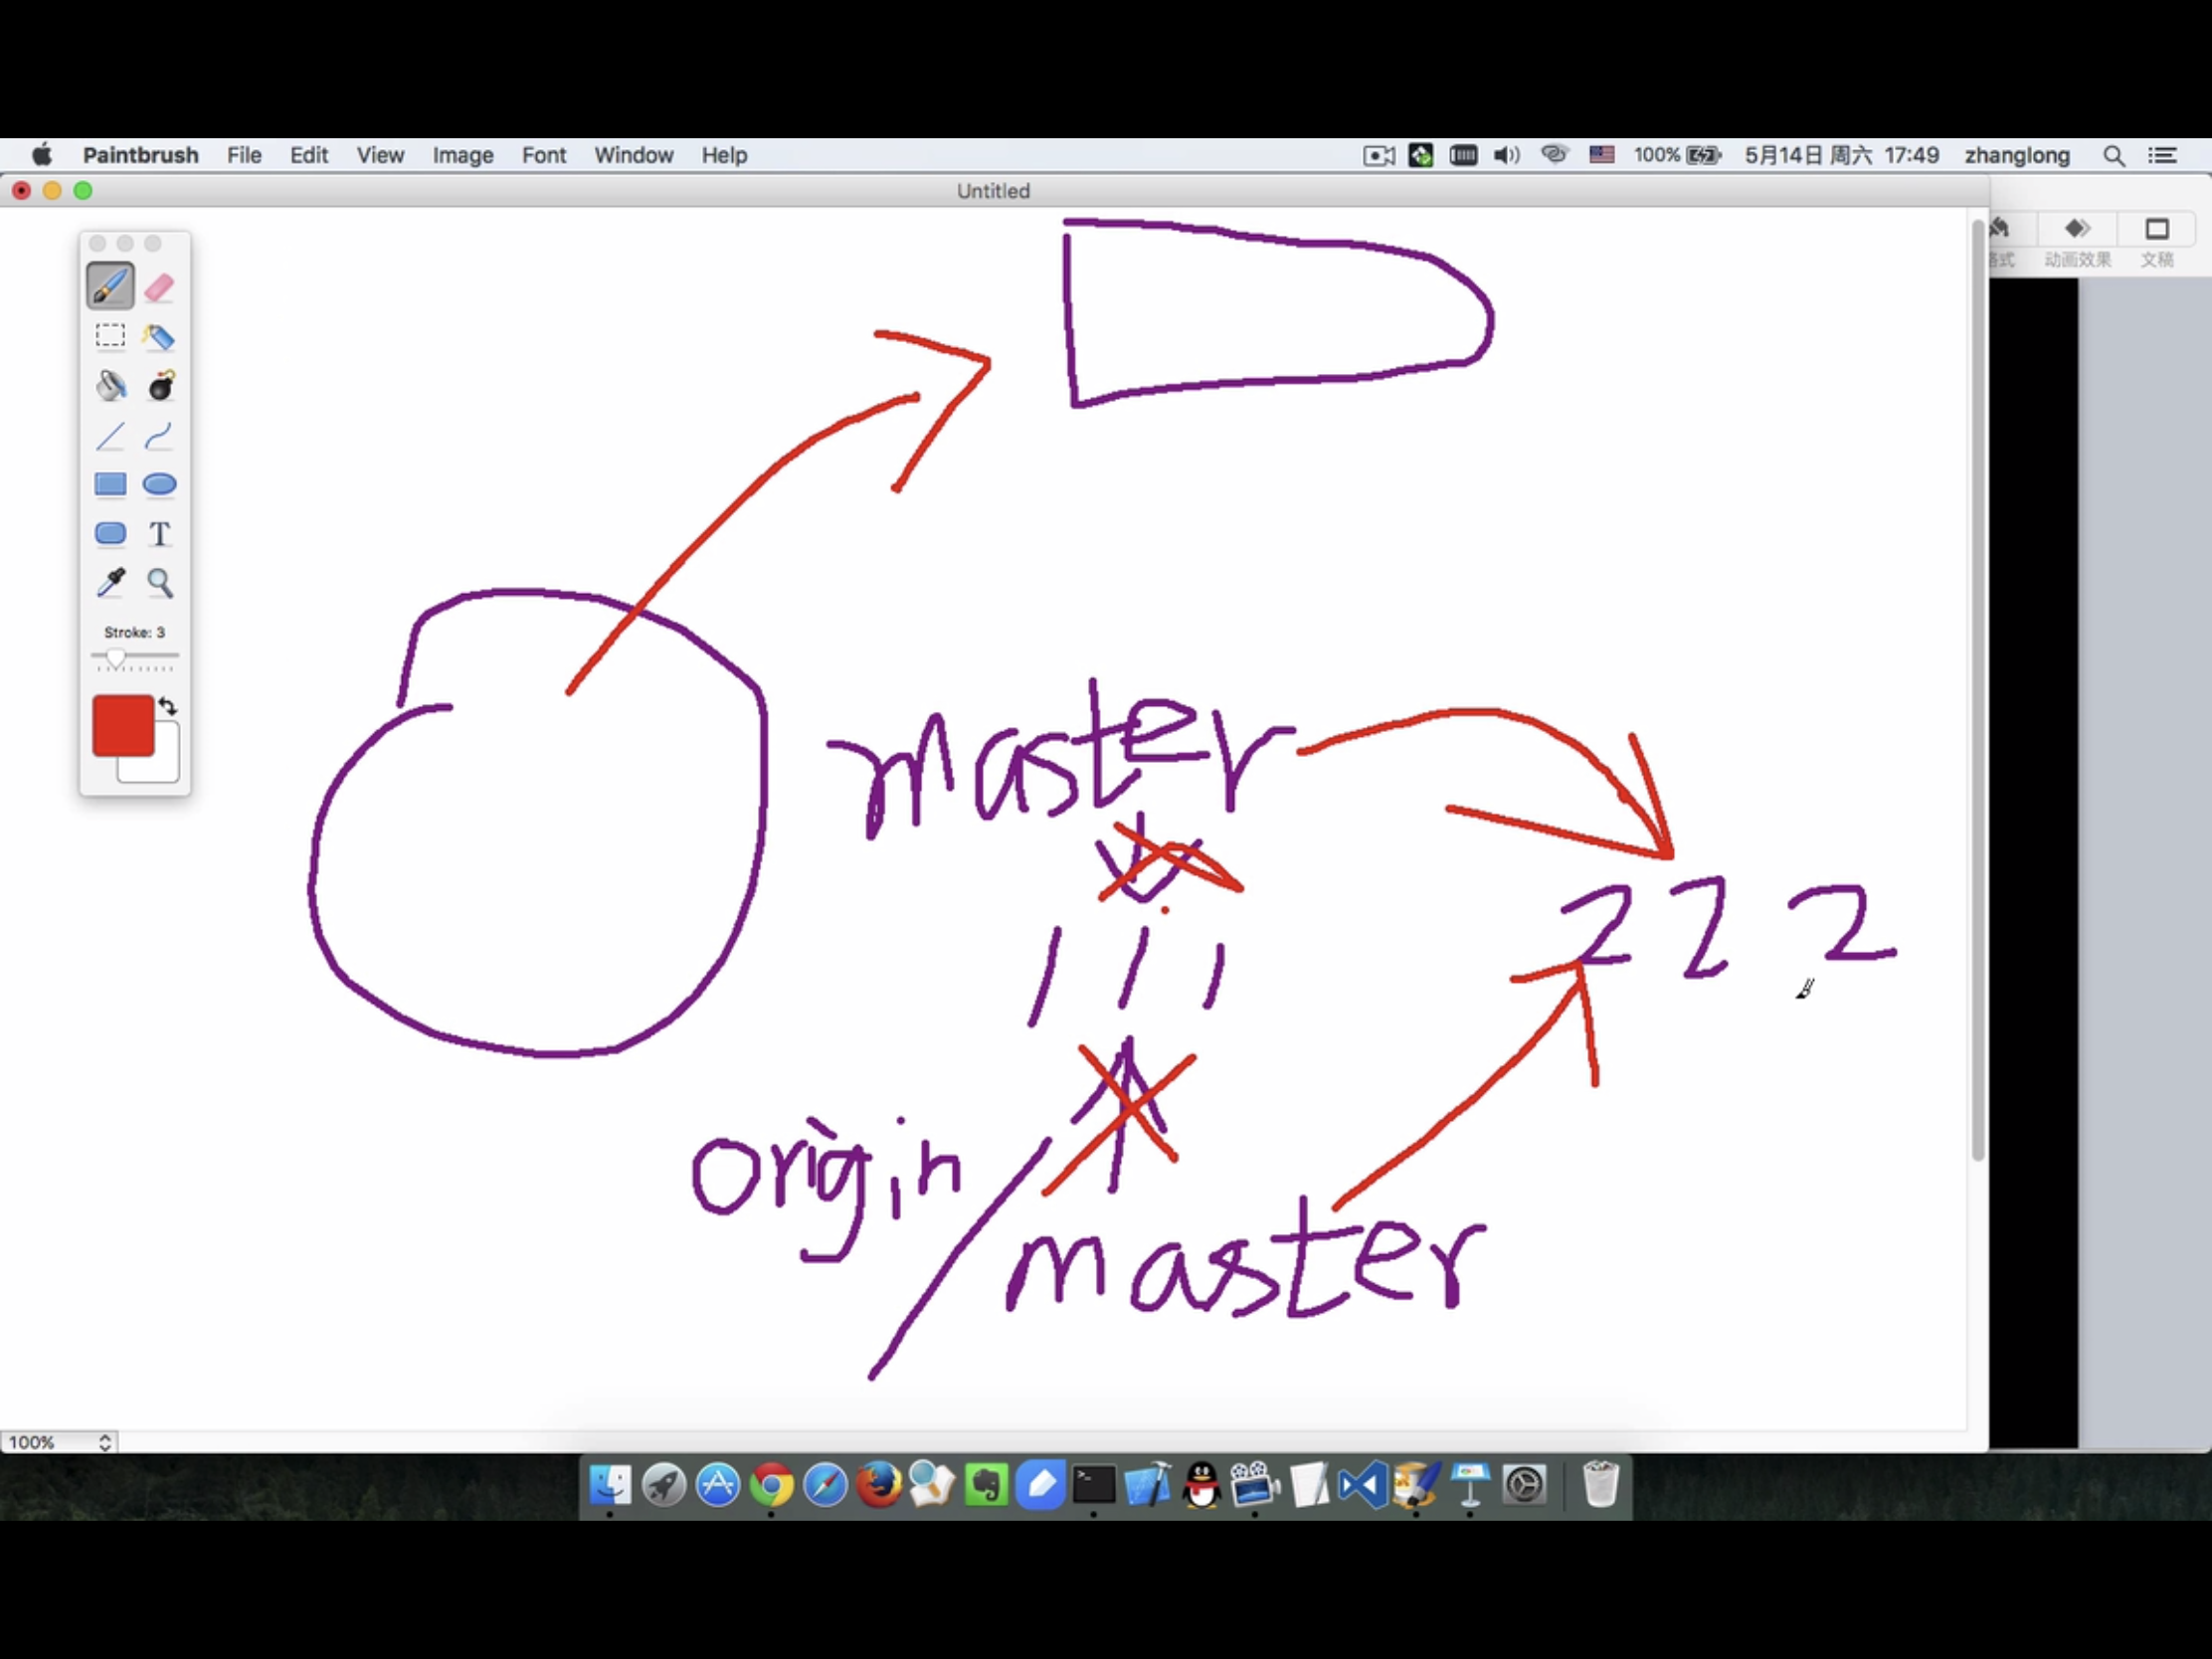 Paintbrush File Edit View Image Font Window Help 100% 5月14日 周六 17:49 zhanglong
Untitled
动画效果 文稿
T
Stroke: 3
master
222
111
origin/master
100%